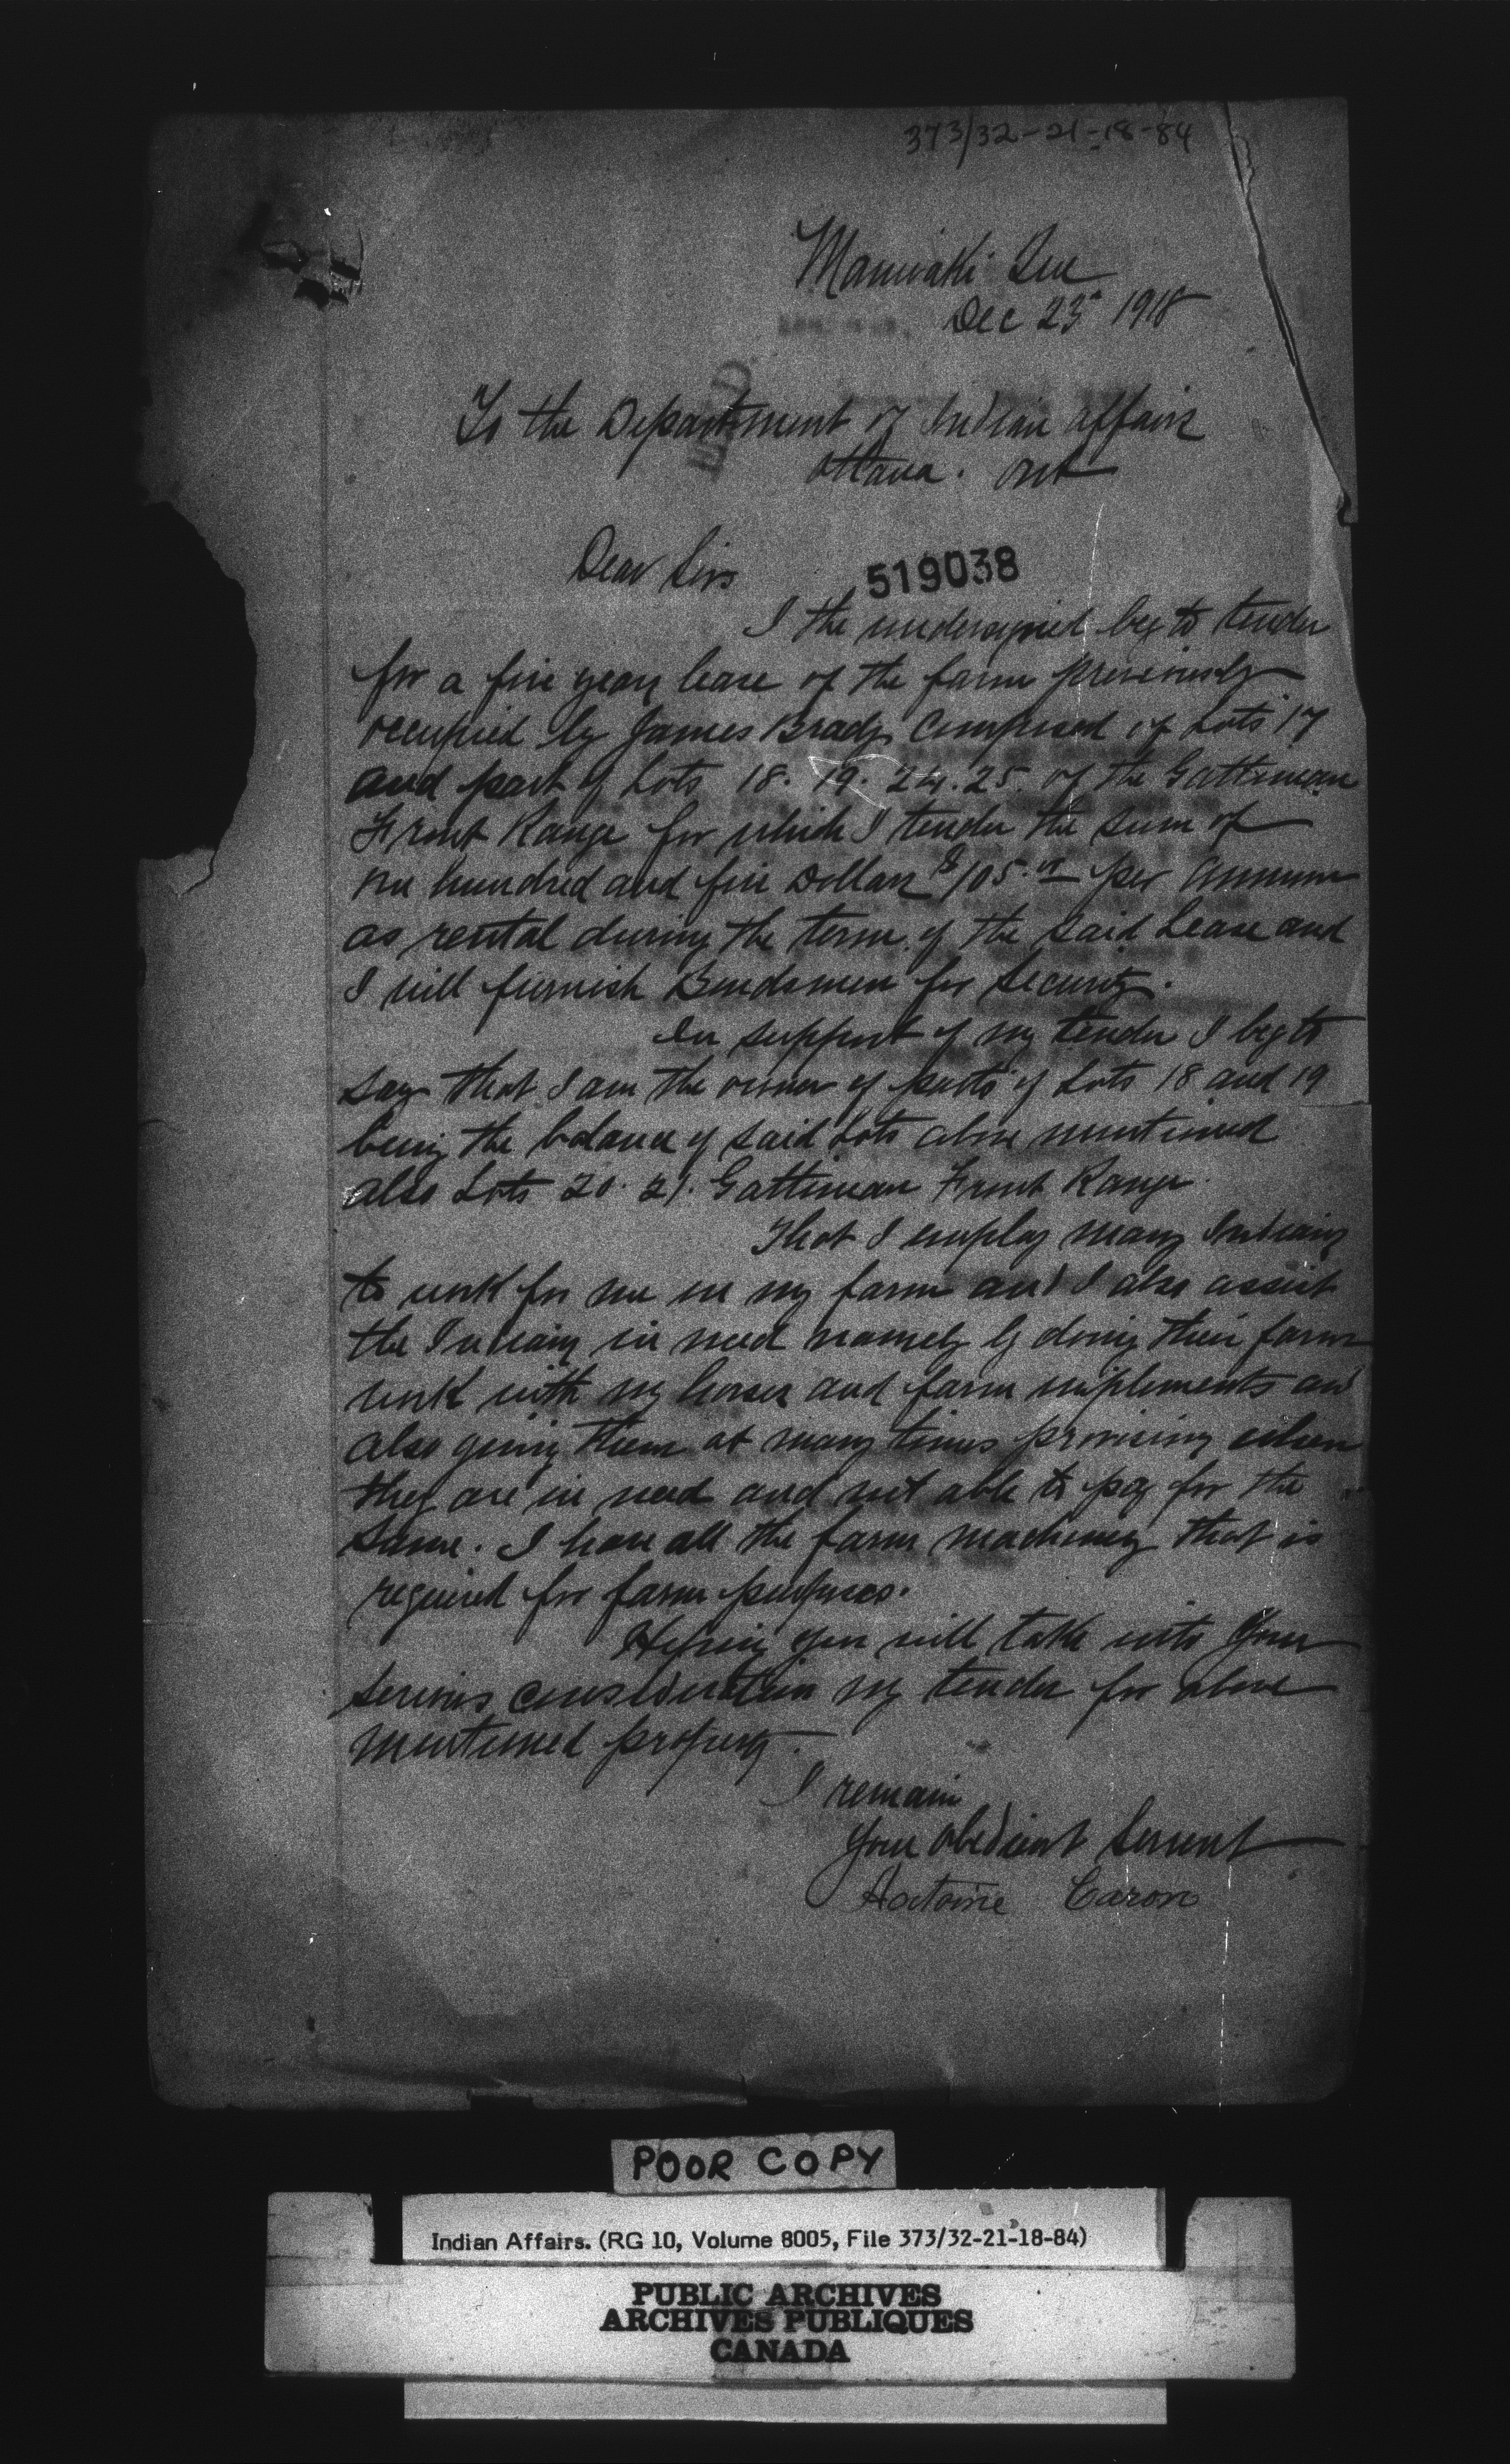 373/32-21-18-84
Maniwaki Que
Dec 23rd 1918
To the Department of Indian affairs
Ottawa. Ont
Dear Sirs
519038
I the undersigned beg to tender
for a five year lease of the farm previously
occupied by James Brady Composed of Lots 17
and part of Lots 18. 19. 24. 25. of the Gattineau
Front Range for which I tender the sum of
One hundred and five Dollars $105.00 per annum
as rental during the term of the said Lease and
I will furnish Bondsmen for Security.
In support of my tender I beg to
say that I am the owner of parts of Lots 18 and 19
being the balance of said Lots above mentioned
also Lots 20. 21. Gattineau Front Range.
That I employ many Indians
to work for me on my farm and I also assist
the Indians in need namely by doing their farm
work with my horses and farm implements and
also giving them at many times provisions when
they are in need and not able to pay for the
same. I have all the farm machinery that is
required for farm purposes.
Hoping you will take into your
serious consideration my tender for above
mentioned property.
I remain
Your obedient Servent
Antoine Caron
POOR COPY
Indian Affairs. (RG 10, Volume 8005, File 373/32-21-18-84)
PUBLIC ARCHIVES
ARCHIVES PUBLIQUES
CANADA